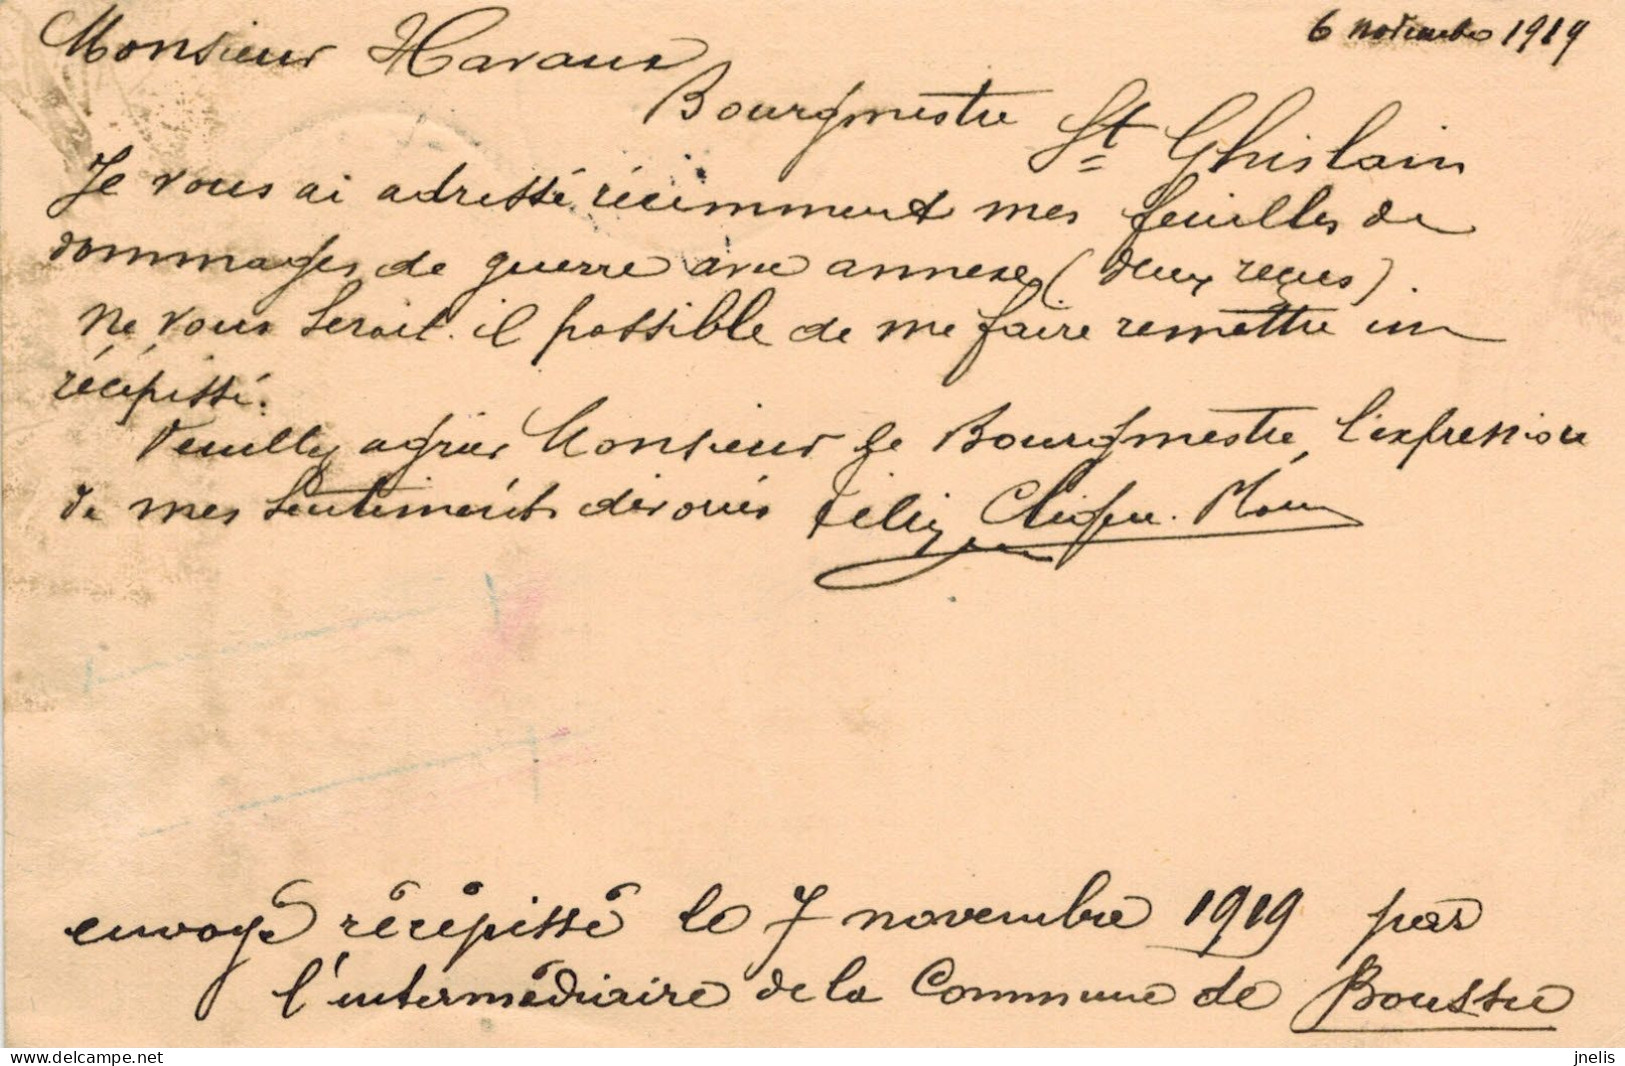 6 novembre 1919
Monsieur Havaux
Bourgmestre St Ghislain
Je vous ai adressé récemment mes feuilles de
dommages de guerre avec annexes (deux reçus).
Ne vous serait-il possible de me faire remettre un
récépissé.
Veuillez agréer Monsieur le Bourgmestre, l'expression
de mes sentiments dévoués Félix
envoyé récépissé le 7 novembre 1919 par
l'intermédiaire de la Commune de Boussu
www.delcampe.net
jnelis